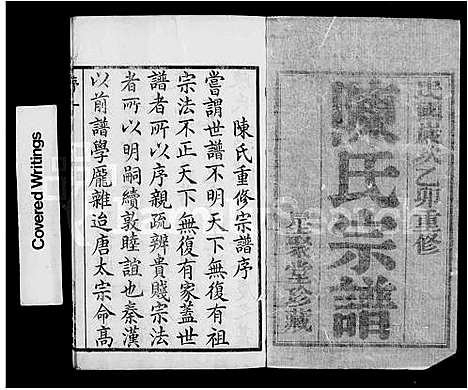 民國歲次乙卯重修
陳氏宗譜
星聚堂珍藏
陳氏重修宗譜序
嘗謂世譜不明天下無復有祖
宗法不正天下無復有家蓋世
譜者所以序親疏辨貴賤宗法
者所以明嗣續敦睦誼也秦漢
以前譜學龐雜迨唐太宗命高
Covered Writings